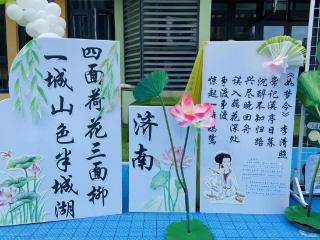 四面荷花三面柳
一城山色半城湖
济南
《如梦令》 李清照
常记溪亭日暮
沉醉不知归路
兴尽晚回舟
误入藕花深处
争渡争渡
惊起 鸥鹭